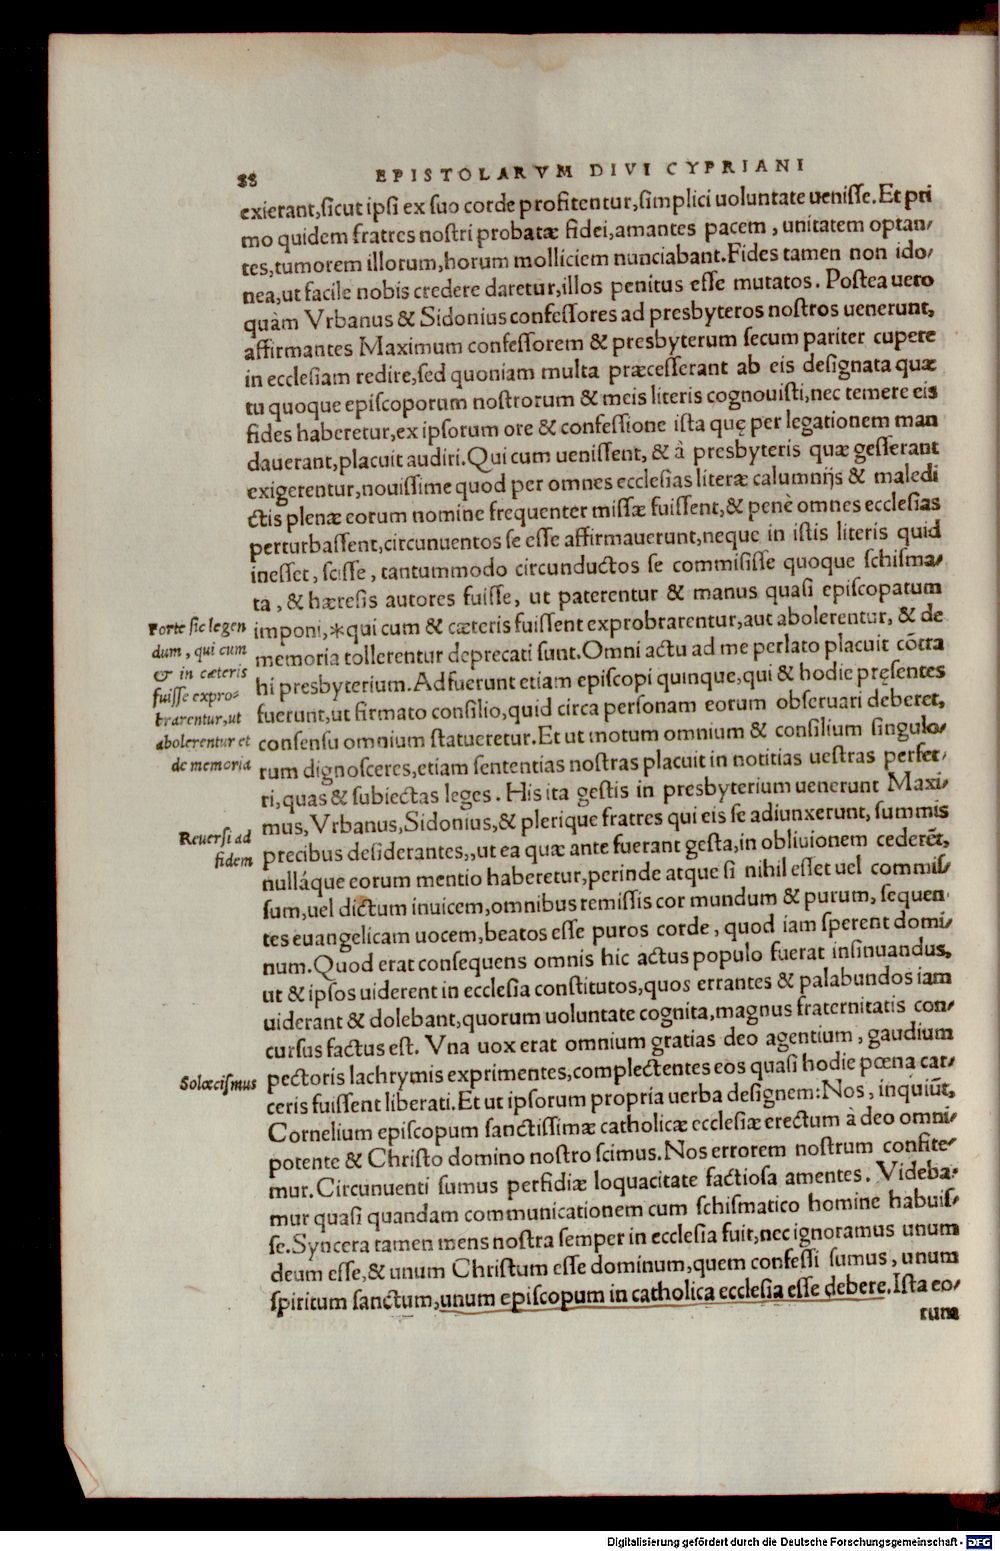 88 EPISTOLARVM DIVI CYPRIANI
exierant,ſicut ipſi ex ſuo corde profitentur,ſimplici uoluntate ueniſſe.Et pri
mo quidem fratres noſtri probatæ fidei,amantes pacem, unitatem optan/
tes,tumorem illorum,horum molliciem nunciabant.Fides tamen non ido/
nea,ut facile nobis credere daretur,illos penitus eſſe mutatos. Poſtea uero
quàm Vrbanus & Sidonius confeſſores ad presbyteros noſtros uenerunt,
affirmantes Maximum confeſſorem & presbyterum ſecum pariter cupere
in eccleſiam redire,ſed quoniam multa præceſſerant ab eis deſignata quæ
tu quoque epiſcoporum noſtrorum & meis literis cognouiſti,nec temere eis
fides haberetur,ex ipſorum ore & confeſſione iſta quę per legationem man
dauerant,placuit audiri.Qui cum ueniſſent, & à presbyteris quæ geſſerant
exigerentur,nouiſſime quod per omnes eccleſias literæ calumnijs & maledi
ctis plenæ eorum nomine frequenter miſſæ fuiſſent,& penè omnes eccleſias
perturbaſſent,circunuentos ſe eſſe affirmauerunt,neque in iſtis literis quid
ineſſet, ſciſſe, tantummodo circunductos ſe commiſiſſe quoque ſchiſma/
ta, & hæreſis autores fuiſſe, ut paterentur & manus quaſi epiſcopatum
imponi,*qui cum & cæteris fuiſſent exprobrarentur,aut abolerentur, & de
memoria tollerentur deprecati ſunt.Omni actu ad me perlato placuit cōtra
hi presbyterium.Adfuerunt etiam epiſcopi quinque,qui & hodie pręſentes
fuerunt,ut firmato conſilio,quid circa perſonam eorum obſeruari deberet,
conſenſu omnium ſtatueretur.Et ut motum omnium & conſilium ſingulo/
rum dignoſceres,etiam ſententias noſtras placuit in notitias ueſtras perfer/
ri,quas & ſubiectas leges. His ita geſtis in presbyterium uenerunt Maxi/
mus,Vrbanus,Sidonius,& plerique fratres qui eis ſe adiunxerunt, ſummis
precibus deſiderantes,,ut ea quæ ante fuerant geſta,in obliuionem cederēt,
nulláque eorum mentio haberetur,perinde atque ſi nihil eſſet uel commiſ/
ſum,uel dictum inuicem,omnibus remiſſis cor mundum & purum, ſequen
tes euangelicam uocem,beatos eſſe puros corde, quod iam ſperent domi/
num.Quod erat conſequens omnis hic actus populo fuerat inſinuandus,
ut & ipſos uiderent in eccleſia conſtitutos,quos errantes & palabundos iam
uiderant & dolebant,quorum uoluntate cognita,magnus fraternitatis con/
curſus factus eſt. Vna uox erat omnium gratias deo agentium, gaudium
pectoris lachrymis exprimentes,complectentes eos quaſi hodie pœna car/
ceris fuiſſent liberati.Et ut ipſorum propria uerba deſignem:Nos, inquiūt,
Cornelium epiſcopum ſanctiſſimæ catholicæ eccleſiæ erectum à deo omni/
potente & Chriſto domino noſtro ſcimus.Nos errorem noſtrum confite/
mur.Circunuenti ſumus perfidiæ loquacitate factioſa amentes. Videba/
mur quaſi quandam communicationem cum ſchiſmatico homine habuiſ/
ſe.Syncera tamen mens noſtra ſemper in eccleſia fuit,nec ignoramus unum
deum eſſe,& unum Chriſtum eſſe dominum,quem confeſſi ſumus, unum
ſpiritum ſanctum,unum epiſcopum in catholica eccleſia eſſe debere.Iſta eo/
rum
Forte ſic legen
dum, qui cum
& in cæteris
fuiſſe expro-
brarentur,ut
abolerentur et
de memoria
Reuerſi ad
fidem
Solœciſmus
Digitalisierung gefördert durch die Deutsche Forschungsgemeinschaft - DFG